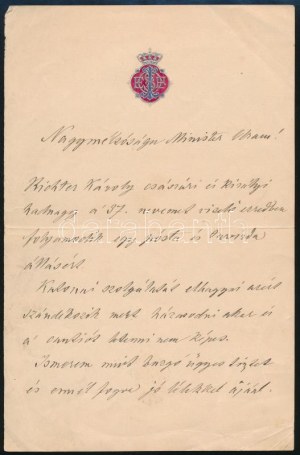 Nagyméltóságu Minister Uram!
Richter Károly császári és királyi
hadnagy a 37. n. nevét viselő ezredben
folyamodik egy posta és
állásért.
Katonai szolgálatát elhagyni azért
szándékozik mert házasodni akar és
a cautiót letenni nem képes.
Ismerem mint ügyes tisztet
és ennél fogva jó lélekkel